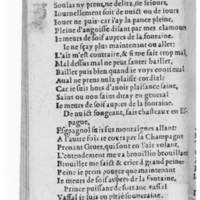 Soulas ny prens, ne delict, ne seiours,
Iournellement soir de nuict ou de iours
Iouer ne puis car i'ay la pance pleine,
Pleine d'angoisse disant par mes clamours
Ie meurs de soif aupres de la fontaine.
Ie ne sçay plus maintenant ou aller:
L'air m'est contraire, & si me fait trop mal,
Mal dessus mal ne peut santé bailler,
Bailler puis bien quand ce vay con
Aual ne prens nulle plaisir cordial:
Car ie suis hors d'auoir plaisance saine,
Sains ou non sains diray en general:
Ie meurs de soif aupres de la fontaine.
De nuict songeant, fais chasteaux en Espagne,
Espagnol si ie suis montaignes allant:
A l'autre fois ie cours par la Champagne
Prenant Grues, qui sont en l'air volant.
L'entendement me va brouillis brouillant
Brouiller me faict & crier à grand peine:
Peine ie prens pource que m'en
Ie meurs de soif aupres de la fontaine.
Prince puissant de tout vassal
Vassal ie suis en pitié souueraine,